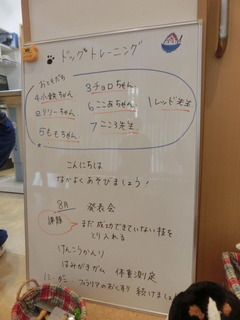 ドッグトレーニング
おともだち
4小鉄ちゃん
3チョロちゃん
1レッド先生
2リリーちゃん
6ここあちゃん
5ももちゃん
7こころ先生
こんにちは
なかよくあそびましょう!
8月 発表会
課題
まだ成功できていない技を
とり入れる
けんこうかんり
はみがきガム 体重測定
フィラリアのおくすり 続けましょ